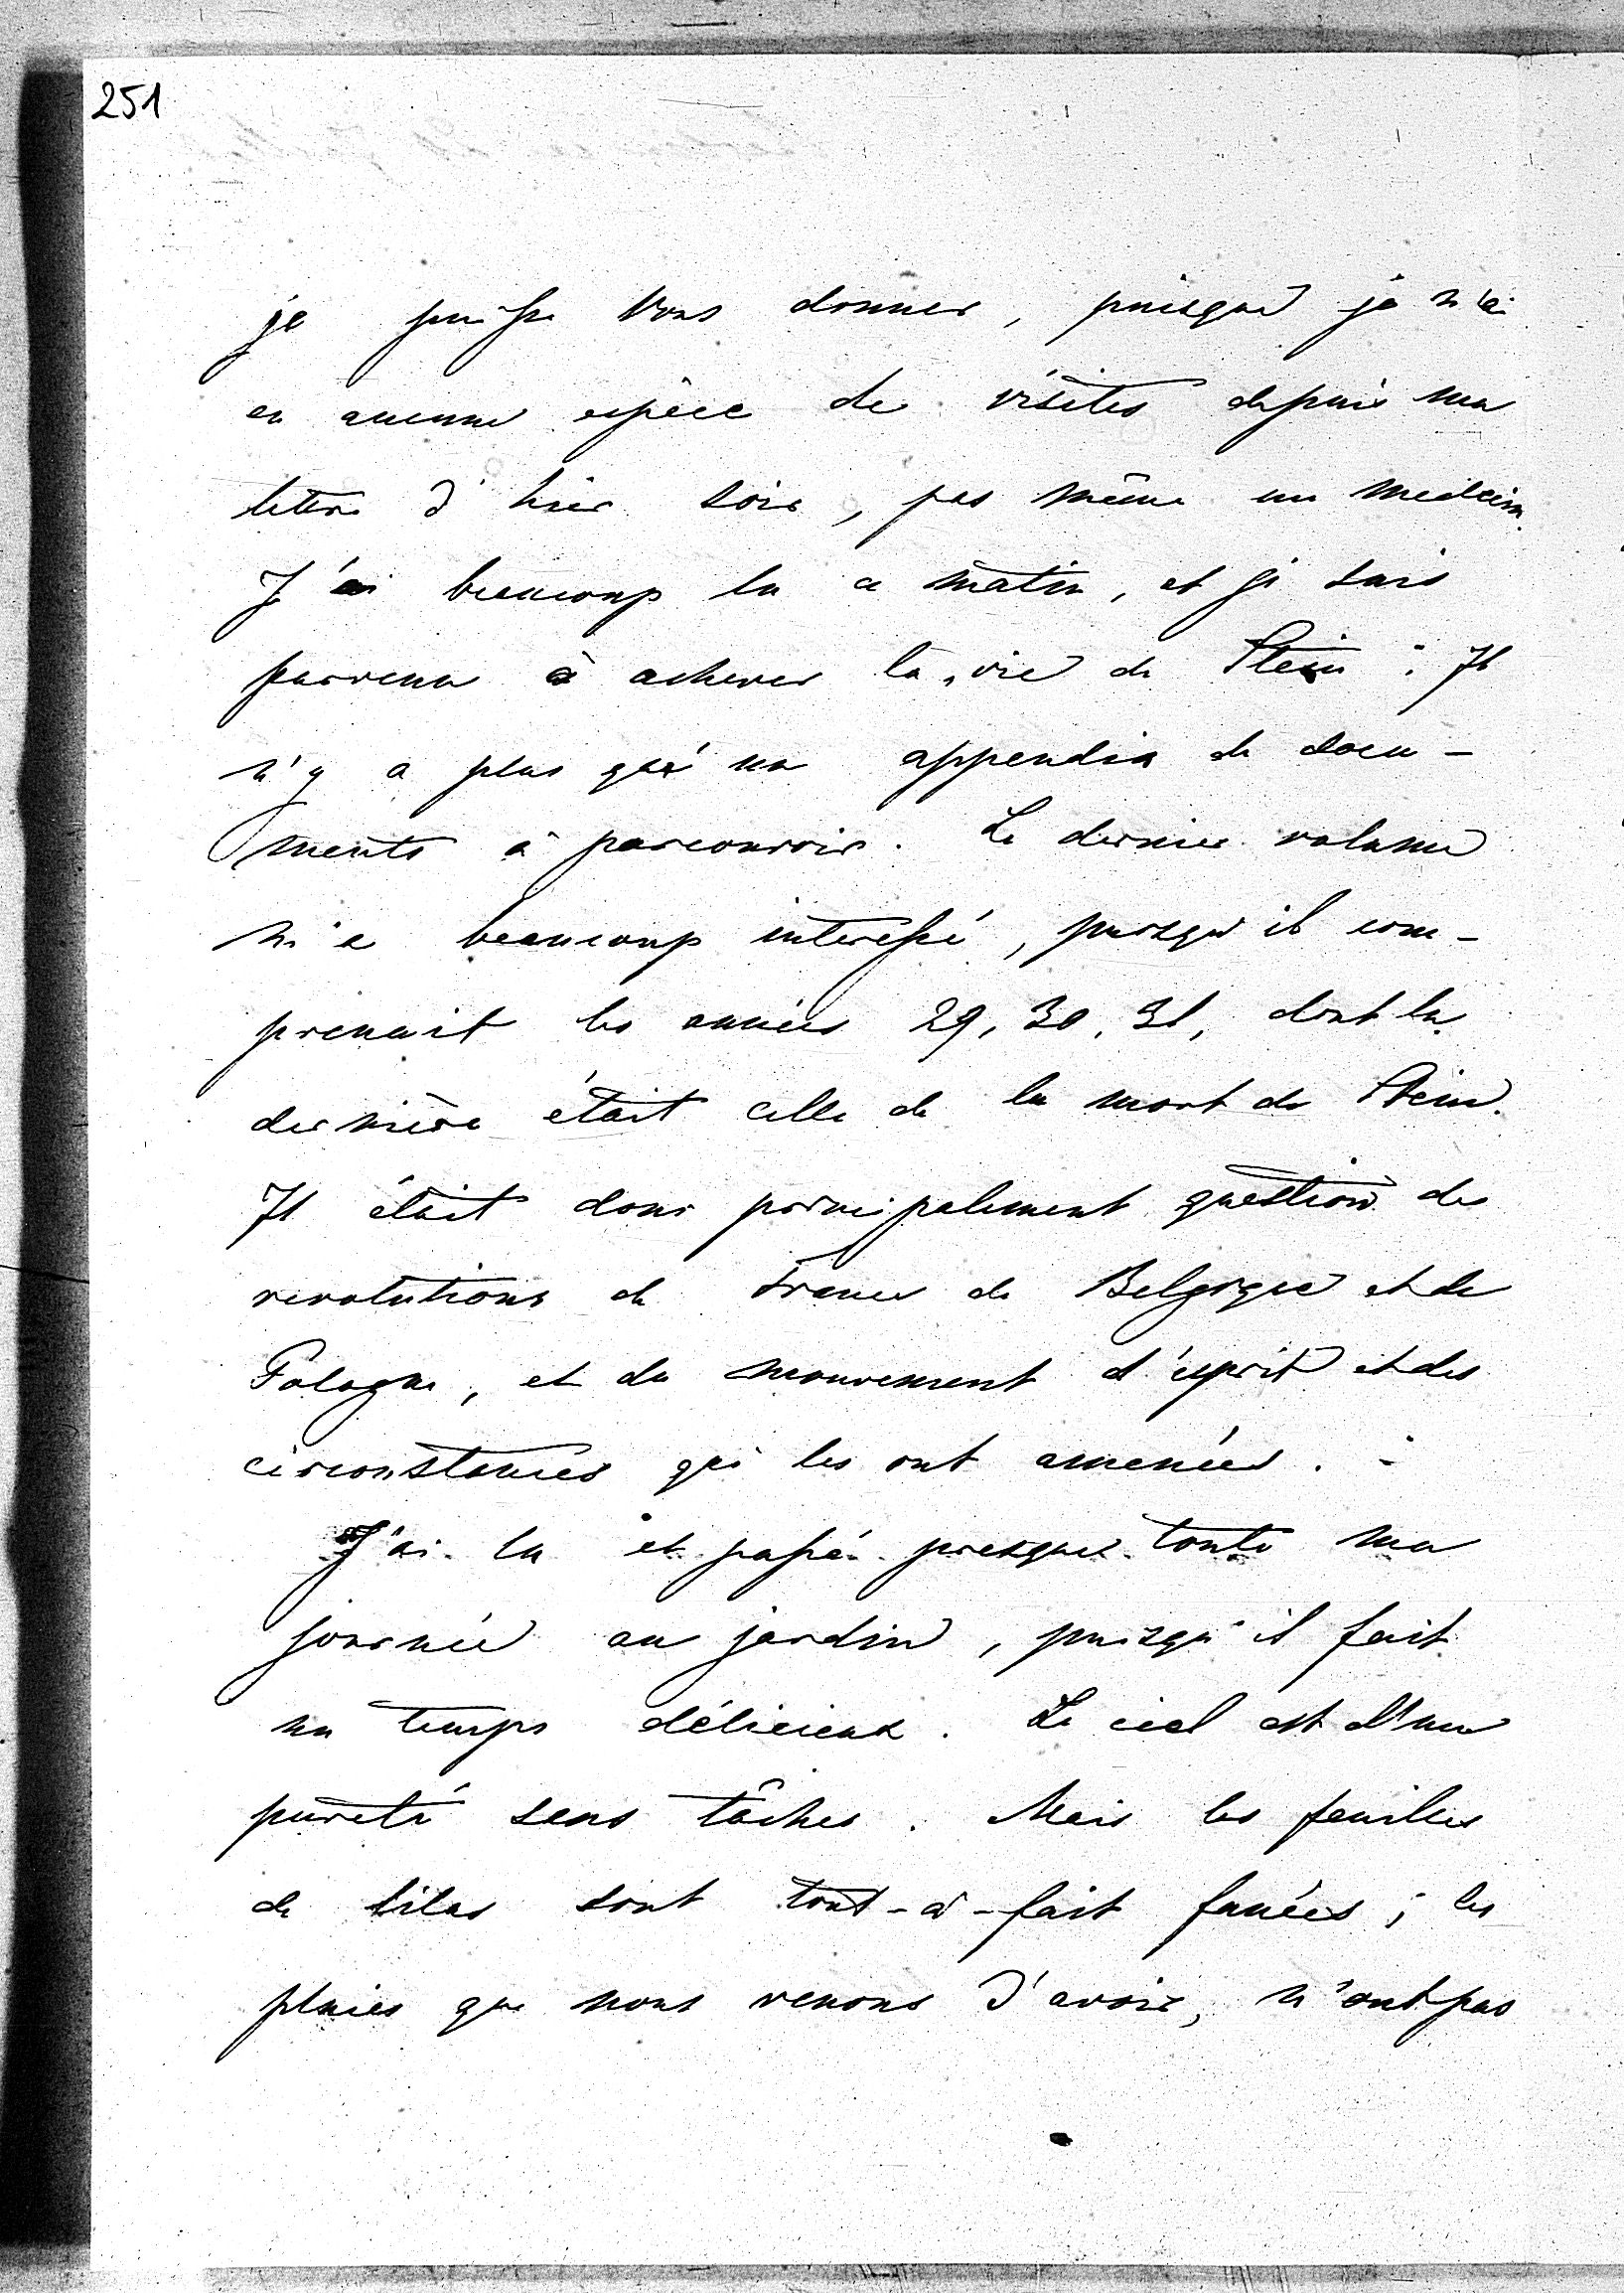 251
je puisse Vous donner, puisque je n'ai
eu aucune espèce de visites depuis ma
lettre d'hier soir, pas même un medecin.
J'ai beaucoup lu ce matin, et je suis
parvenu à achever la vie de Stein: Il
n'y a plus qu'un appendix de docu-
ments à parcourir. Le dernier volume
m'a beaucoup interessé, puisqu'il com-
prenait les années 29, 30, 31, dont la
dernière était celle de la mort de Stein.
Il était donc principalement question des
revolutions de France de Belgique et de
Pologne, et du mouvement d'esprit et des
circonstances qui les ont amenées. -
J'ai lu et passé presque toute ma
journée au jardin, puisqu'il fait
un temps délicieux. Le ciel est d'une
pureté sans tâches. Mais les feuilles
de lilas sont tout-à-fait fanées; les
pluies que nous venons d'avoir, n'ont pas